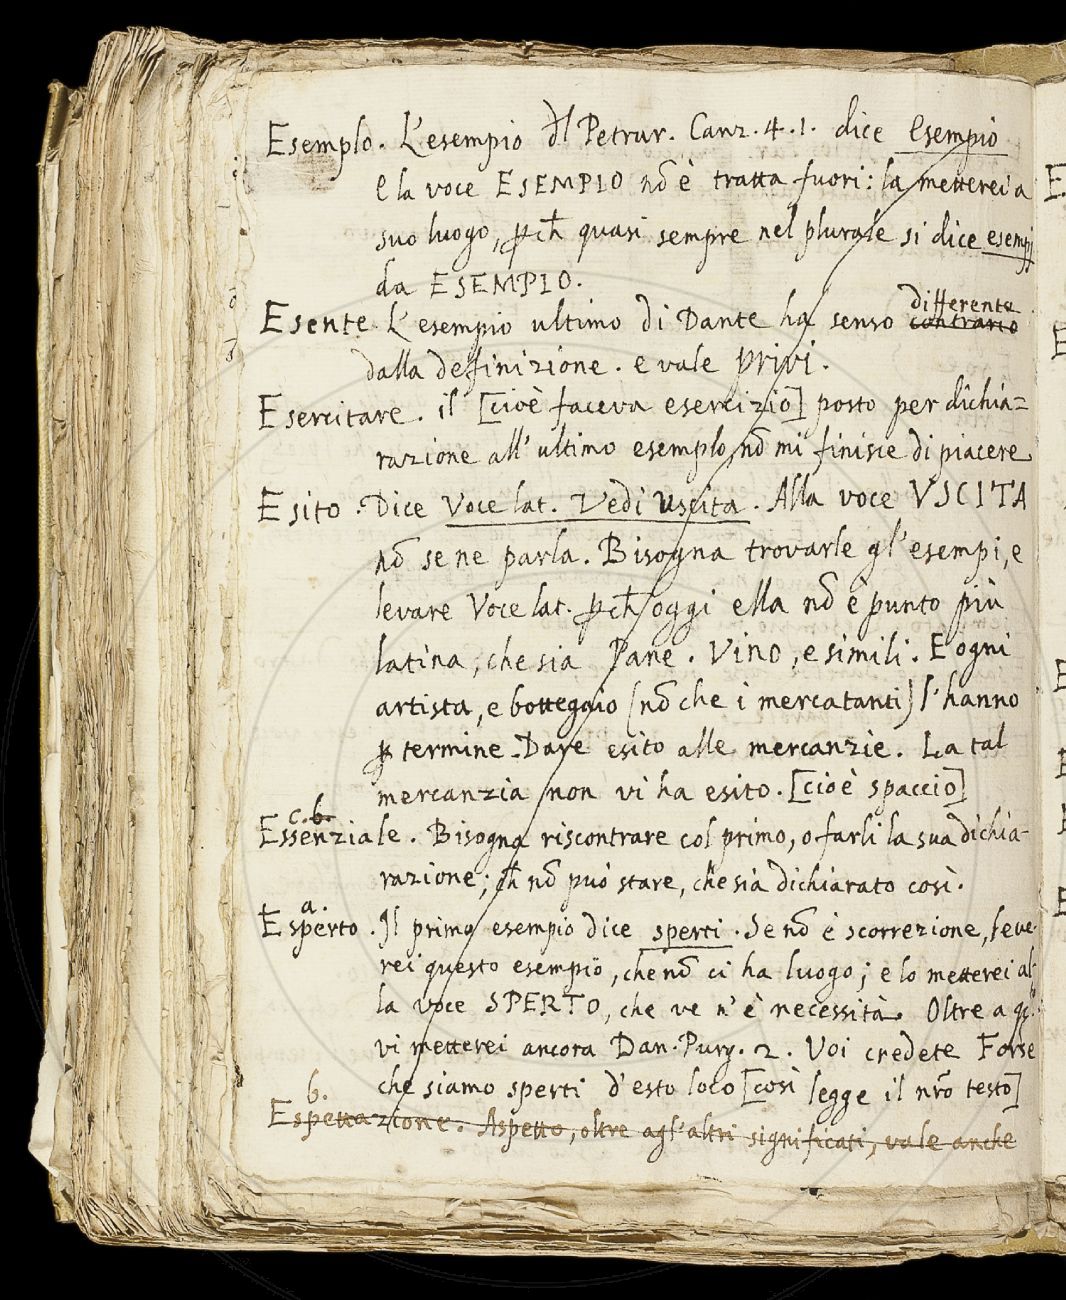 Esemplo. L'esempio dl Petrar. Canz. 4. 1. dice esempio
e la voce ESEMPIO nõ è tratta fuori: la metterei a
suo luogo, pch̃ quasi sempre nel plurale si dice esempj
da ESEMPIO.
differente
Esente L'esempio ultimo di Dante ha senso contrario
dalla definizione. e vale privi.
Esercitare. il [cioè faceva esercizio] posto per dichia=
razione all'ultimo esemplo nõ mi finisce di piacere
Esito. Dice Voce lat. Vedi uscita. Alla voce VSCITA
nõ se ne parla. Bisogna trovarle gl'esempi, e
levare Voce lat. pch̃ oggi ella nõ è punto più
latina, che sia Pane. Vino, e simili. E ogni
artista, e botteggaio (nõ che i mercatanti) l'hanno
p termine Dare esito alle mercanzie. La tal
mercanzia non vi ha esito. [cioè spaccio]
c.b.
Essenziale. Bisogna riscontrare col primo, o farli la sua dichia-
razione; ch̃ nõ può stare, che sia dichiarato così.
a.
Esperto. Il primo esempio dice sperti. Se nõ è scorrezione, leve-
rei questo esempio, che nõ ci ha luogo; e lo metterei al-
la voce SPERTO, che ve n'è necessità. Oltre a
vi metterei ancora Dan. Purg. 2. Voi credete Forse
che siamo sperti d'esto loco [così legge il nr̃o testo]
b.
Espettazione. Aspetto, oltre agl'altri significati, vale anche